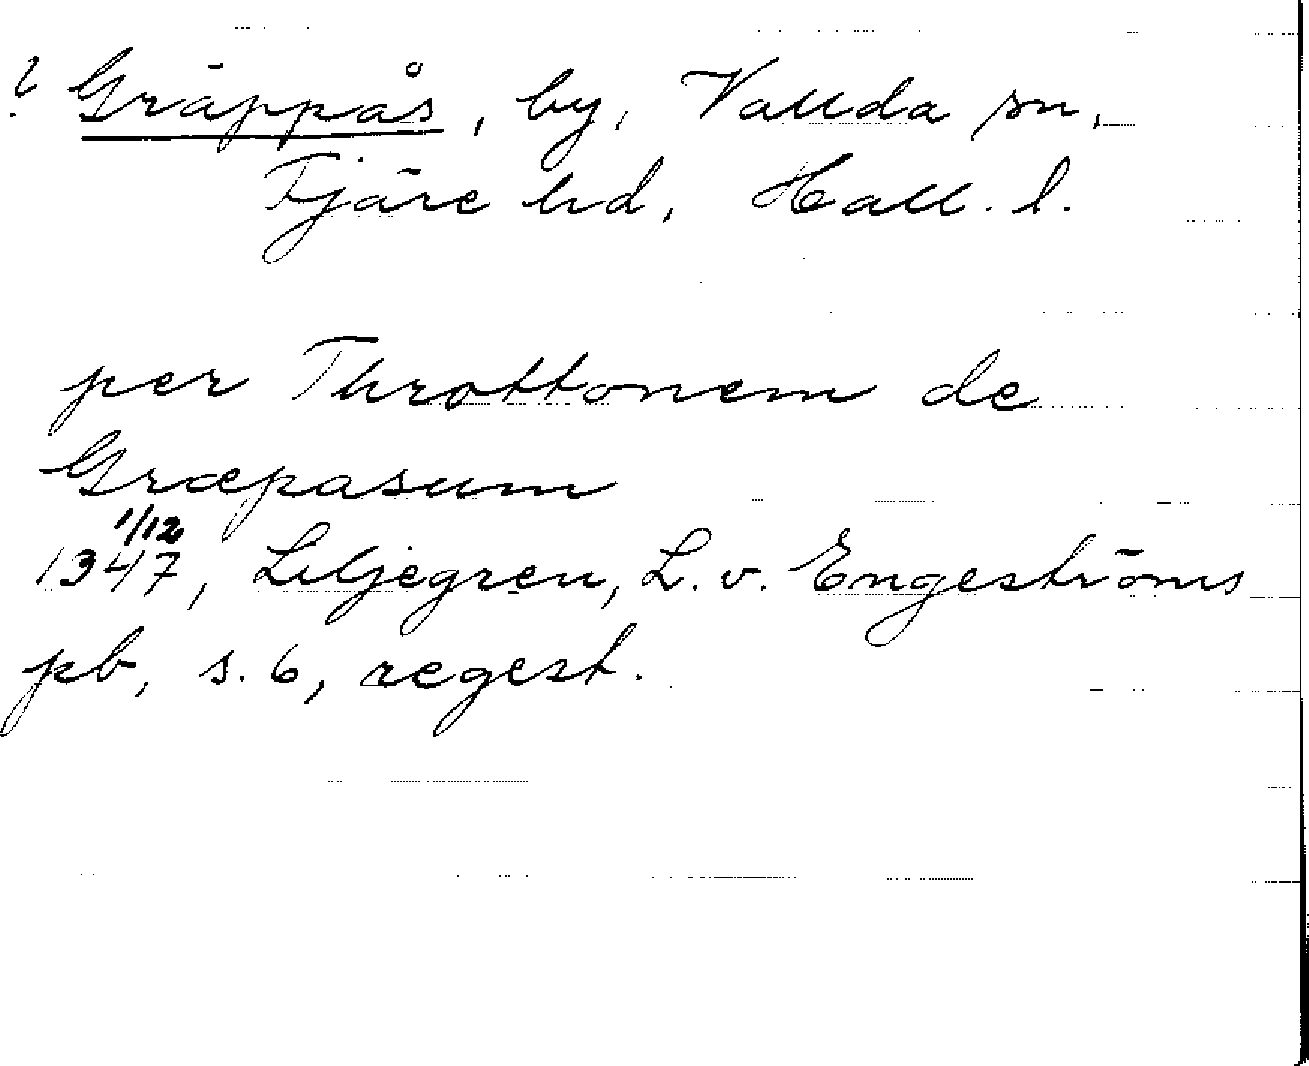 ? Gräppås, by, Vallda sn,
Fjäre hd, Hall. l.
per Throttonem de
Græpasum
1/12
1347, Liljegren, L. v. Engeströms
pb, s. 6, regest.